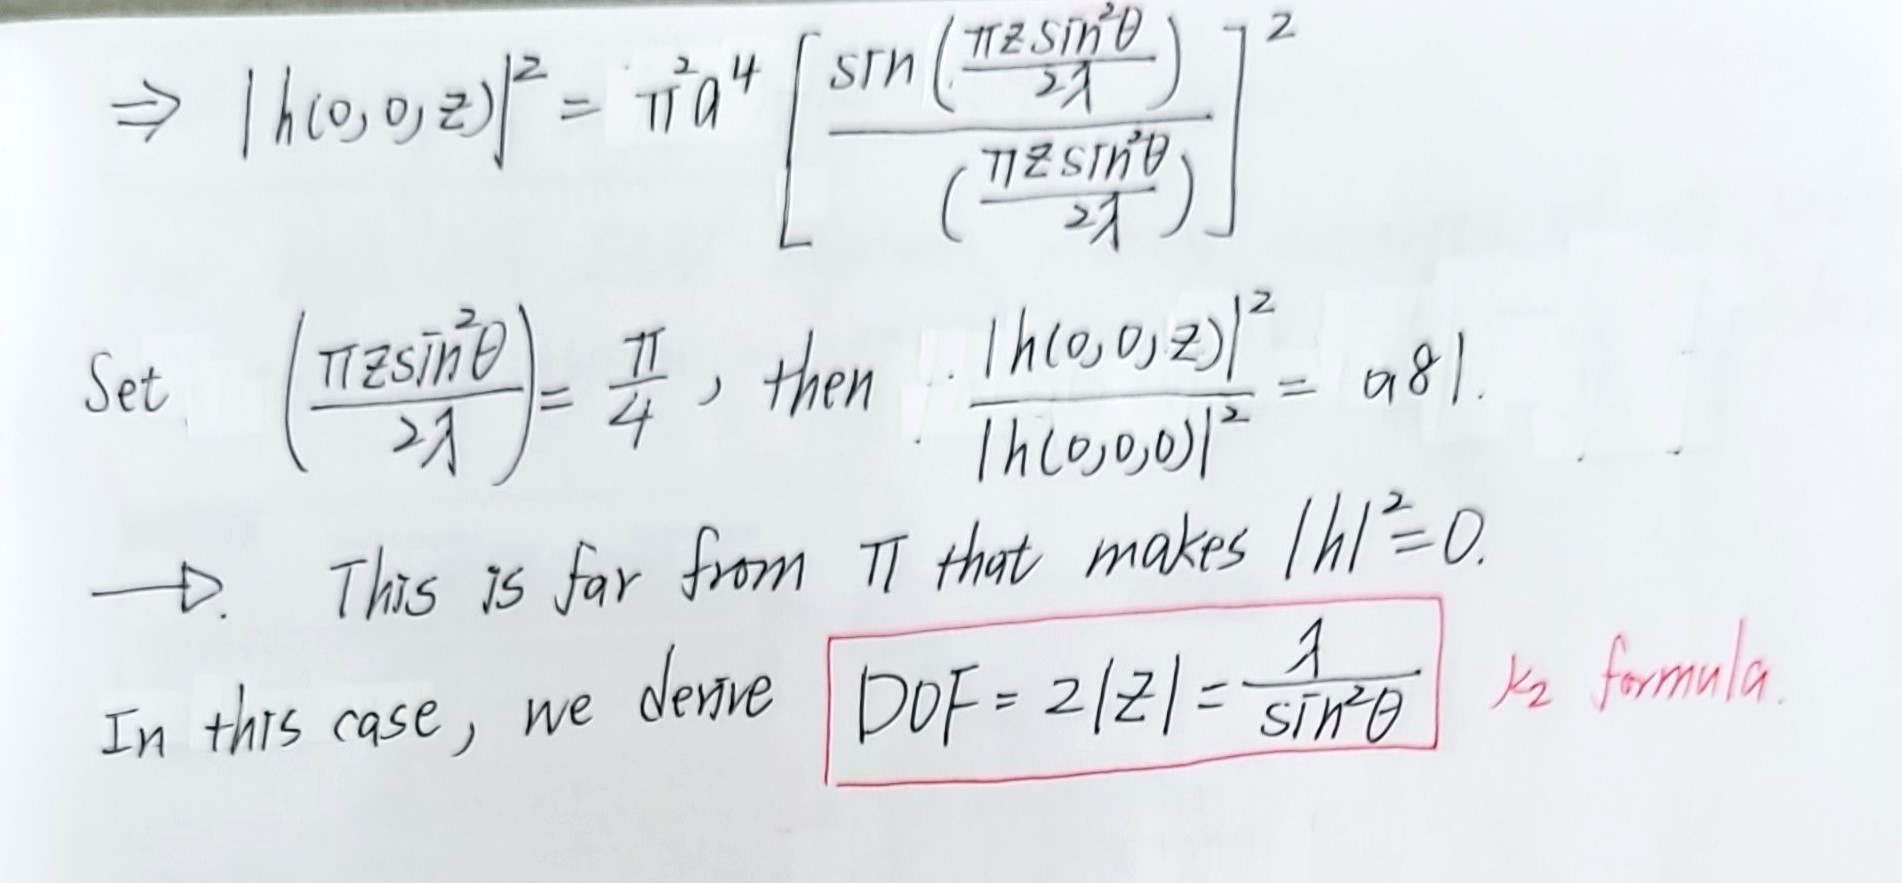 ⇒ |h(0,0,z)|² = π²a⁴ [ sin(πz sin²θ / 2λ) / (πz sin²θ / 2λ) ]²
Set (πz sin²θ / 2λ) = π/4, then |h(0,0,z)|² / |h(0,0,0)|² = 0.81.
→ This is far from π that makes |h|² = 0.
In this case, we derive DOF = 2|z| = λ / sin²θ k₂ formula.